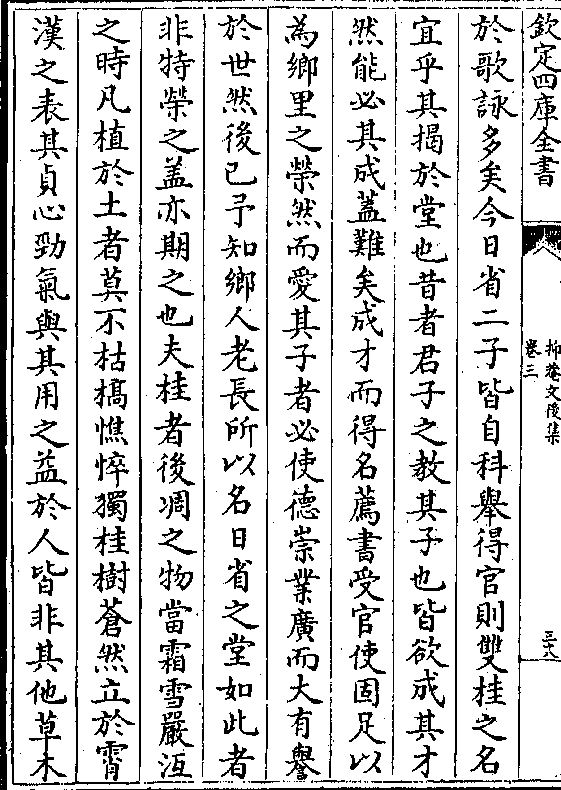 欽定四庫全書
抑菴文後集
卷三
三十八
於歌詠多矣今日省二子皆自科舉得官則雙桂之名
宜乎其揭於堂也昔者君子之教其子也皆欲成其才
然能必其成蓋難矣成才而得名薦書受官使固足以
為鄉里之榮然而愛其子者必使德崇業廣而大有譽
於世然後已予知鄉人老長所以名日省之堂如此者
非特榮之蓋亦期之也夫桂者後凋之物當霜雪嚴沍
之時凡植於土者莫不枯槁憔悴獨桂樹蒼然立於霄
漢之表其貞心勁氣與其用之益於人皆非其他草木